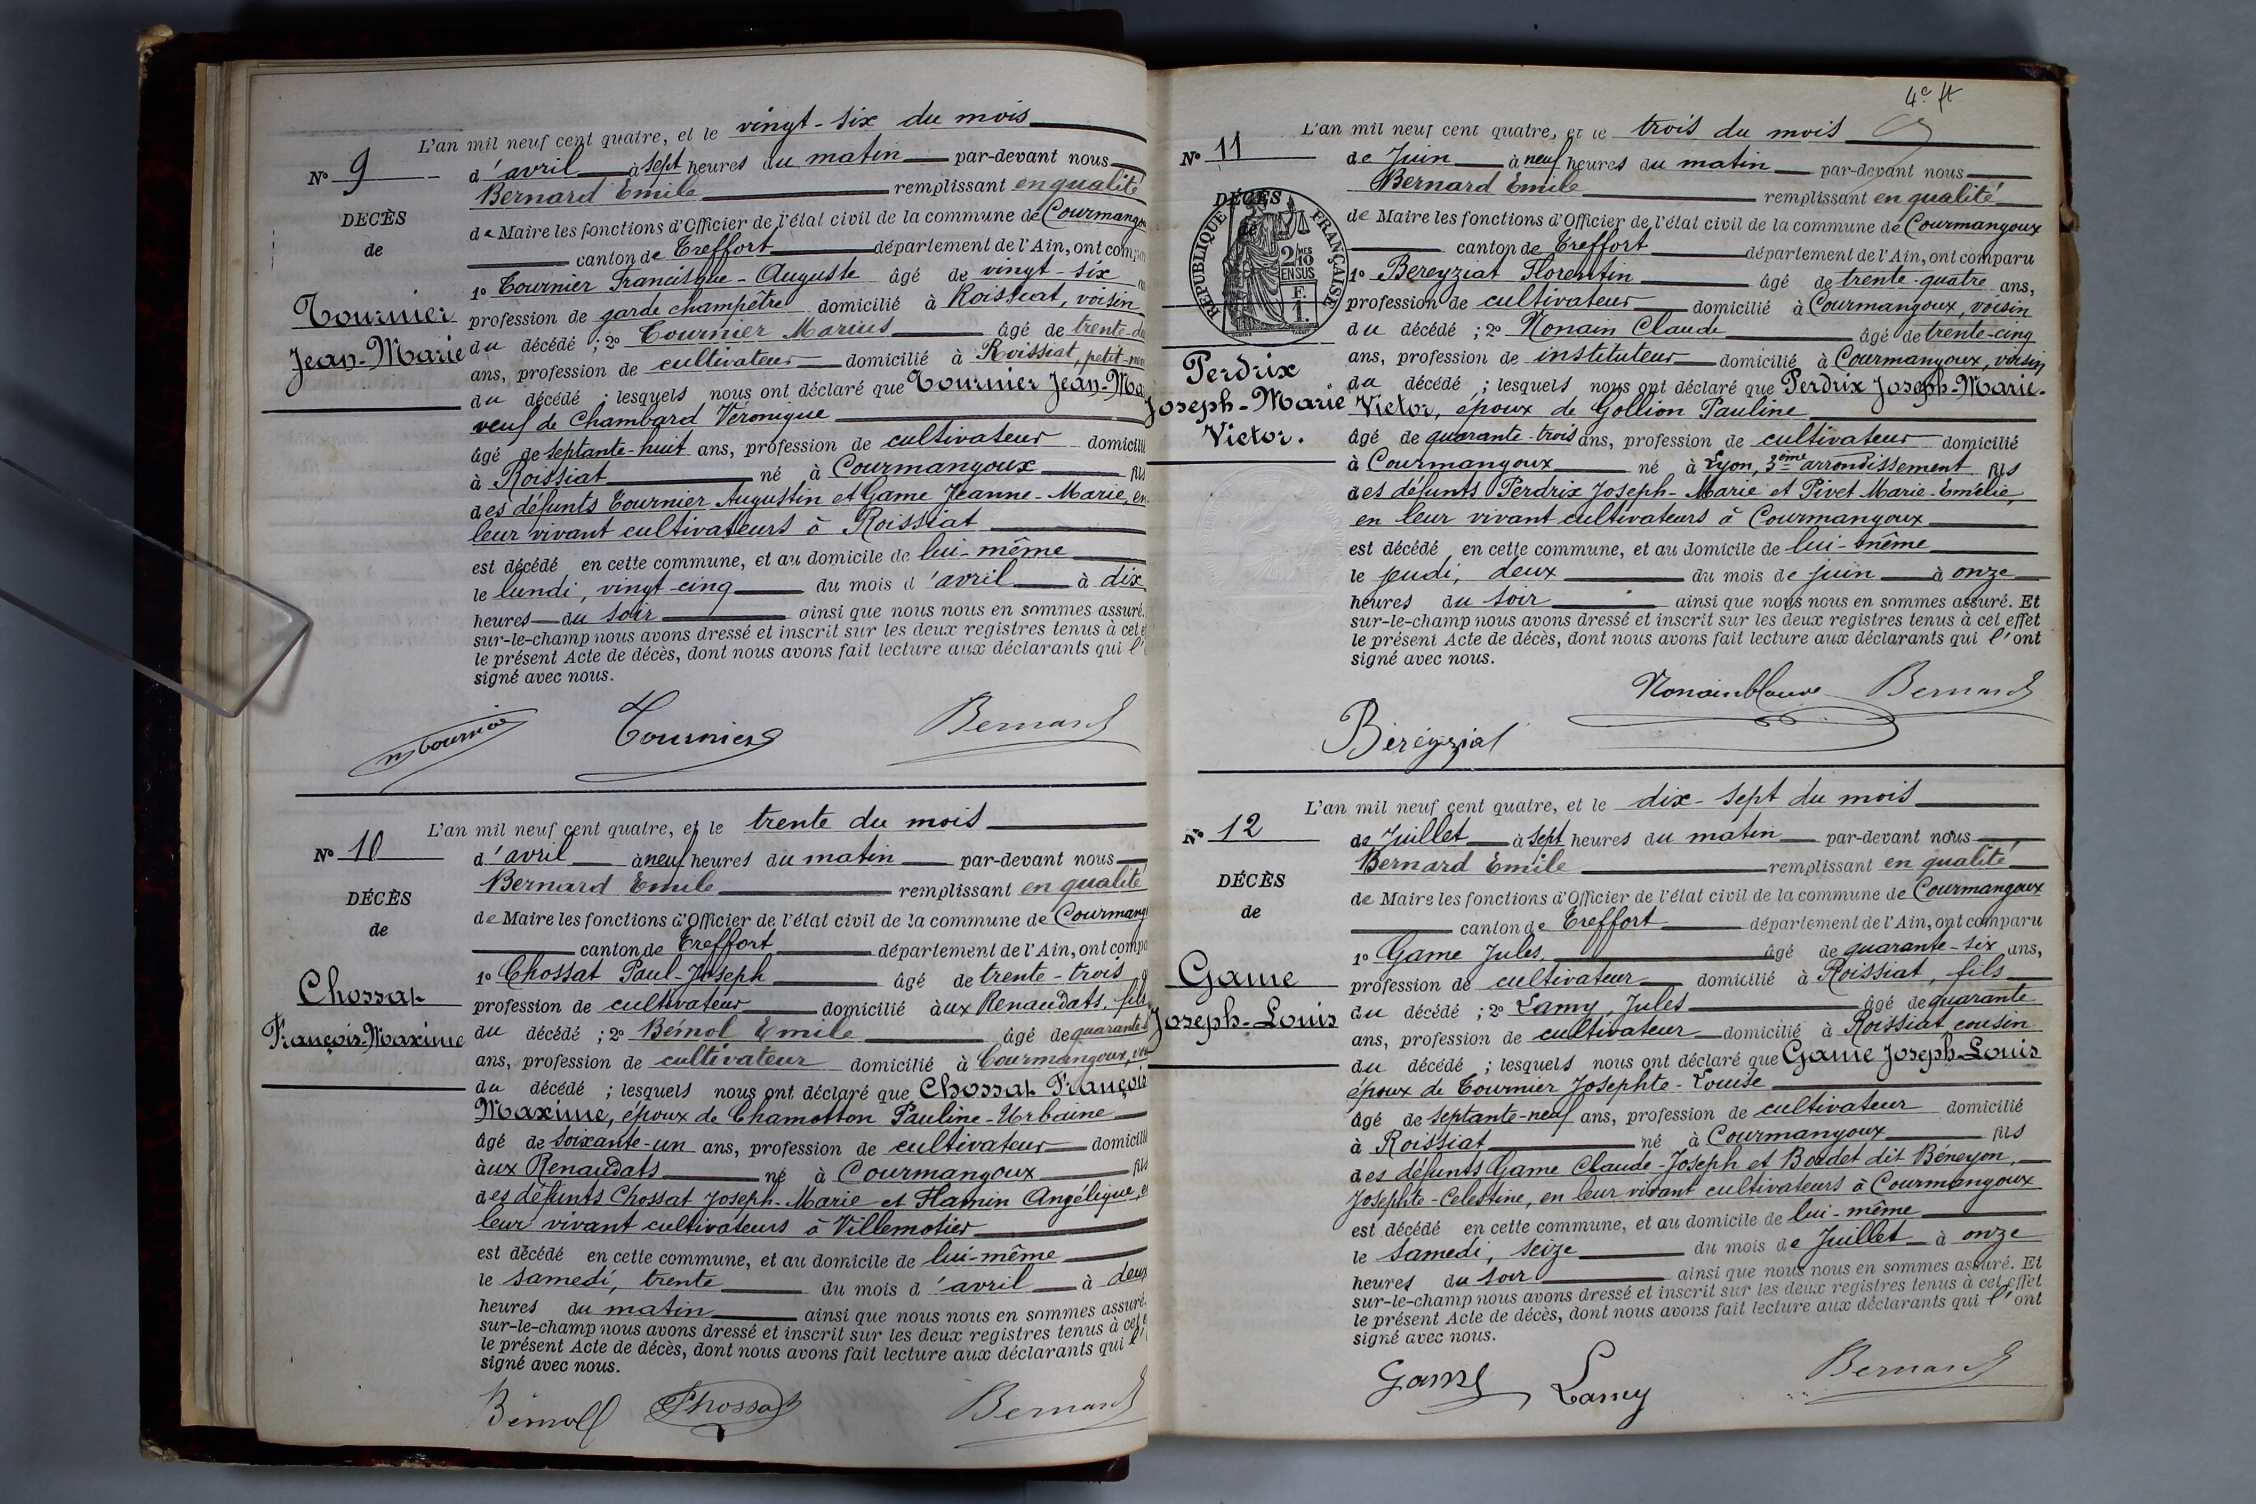 L'an mil neuf cent quatre, et le vingt-six du mois
No 9
d'avril à sept heures du matin par-devant nous
Bernard Emile remplissant en qualité
DÉCÈS
de Maire les fonctions d'Officier de l'état civil de la commune de
de
canton de Treffort département de l'Ain, ont
1o Tournier Francisque-Auguste âgé de vingt-six
Tournier
profession de garde champêtre domicilié à Roissiat, voisin
Jean-Marie
du décédé ; 2o Tournier Marius âgé de
ans, profession de cultivateur domicilié à Roissiat,
du décédé ; lesquels nous ont déclaré que Tournier
veuf de Chambard Véronique
âgé de septante-huit ans, profession de cultivateur
à Roissiat né à Courmangoux fils
des défunts Tournier Augustin et Game Jeanne-Marie, en
leur vivant cultivateurs à Roissiat
est décédé en cette commune, et au domicile de lui-même
le lundi, vingt-cinq du mois d'avril à dix
heures du soir ainsi que nous nous en sommes assuré.
sur-le-champ nous avons dressé et inscrit sur les deux registres tenus à cet
le présent Acte de décès, dont nous avons fait lecture aux déclarants qui l'
signé avec nous.
Tournier Bernard
L'an mil neuf cent quatre, et le trente du mois
No 10
d'avril à neuf heures du matin par-devant nous
Bernard Emile remplissant en qualité
DÉCÈS
de Maire les fonctions d'Officier de l'état civil de la commune de
de
canton de Treffort département de l'Ain, ont
1o Chossat Paul-Joseph âgé de trente-trois
Chossat
profession de cultivateur domicilié aux Renaudats, fils
François-Maxime
du décédé ; 2o Bémol Emile âgé de
ans, profession de cultivateur domicilié à Courmangoux,
du décédé ; lesquels nous ont déclaré que Chossat François
Maxime, époux de Chamotton Pauline-Urbaine
âgé de soixante-un ans, profession de cultivateur
aux Renaudats né à Courmangoux fils
des défunts Chossat Joseph-Marie et Flamin Angélique,
leur vivant cultivateurs à Villemotier
est décédé en cette commune, et au domicile de lui-même
le samedi, trente du mois d'avril à deux
heures du matin ainsi que nous nous en sommes assuré.
sur-le-champ nous avons dressé et inscrit sur les deux registres tenus à cet
le présent Acte de décès, dont nous avons fait lecture aux déclarants qui l'
signé avec nous.
Bémol Chossat Bernard
4e ft
L'an mil neuf cent quatre, et le trois du mois
No 11
de Juin à neuf heures du matin par-devant nous
Bernard Emile remplissant en qualité
DÉCÈS
de Maire les fonctions d'Officier de l'état civil de la commune de Courmangoux
de
REPUBLIQUE FRANÇAISE
2/10 EN SUS
F. 1.
canton de Treffort département de l'Ain, ont comparu
1o Bereyziat Florentin âgé de trente-quatre ans,
profession de cultivateur domicilié à Courmangoux, voisin
du décédé ; 2o Nonain Claude âgé de trente-cinq
ans, profession de instituteur domicilié à Courmangoux, voisin
Perdrix
Joseph-Marie
Victor.
du décédé ; lesquels nous ont déclaré que Perdrix Joseph-Marie-
Victor, époux de Gollion Pauline
âgé de quarante-trois ans, profession de cultivateur domicilié
à Courmangoux né à Lyon, 3ème arrondissement fils
des défunts Perdrix Joseph-Marie et Pivet Marie-Emélie,
en leur vivant cultivateurs à Courmangoux
est décédé en cette commune, et au domicile de lui-même
le jeudi, deux du mois de juin à onze
heures du soir ainsi que nous nous en sommes assuré. Et
sur-le-champ nous avons dressé et inscrit sur les deux registres tenus à cet effet
le présent Acte de décès, dont nous avons fait lecture aux déclarants qui l'ont
signé avec nous.
Bernard
Béréyziat
L'an mil neuf cent quatre, et le dix-sept du mois
No 12
de Juillet à sept heures du matin par-devant nous
Bernard Emile remplissant en qualité
DÉCÈS
de Maire les fonctions d'Officier de l'état civil de la commune de Courmangoux
de
canton de Treffort département de l'Ain, ont comparu
1o Game Jules, âgé de quarante-six ans,
Game
profession de cultivateur domicilié à Roissiat, fils
Joseph-Louis
du décédé ; 2o Lamy, Jules âgé de quarante
ans, profession de cultivateur domicilié à Roissiat cousin
du décédé ; lesquels nous ont déclaré que Game Joseph-Louis
époux de Tournier Josephte-Louise
âgé de septante-neuf ans, profession de cultivateur domicilié
à Roissiat né à Courmangoux fils
des défunts Game Claude-Joseph et Bordet dit Béneyon,
Josephte-Celestine, en leur vivant cultivateurs à Courmangoux
est décédé en cette commune, et au domicile de lui-même
le samedi, seize du mois de Juillet à onze
heures du soir ainsi que nous nous en sommes assuré. Et
sur-le-champ nous avons dressé et inscrit sur les deux registres tenus à cet effet
le présent Acte de décès, dont nous avons fait lecture aux déclarants qui l'ont
signé avec nous.
Game Lamy Bernard